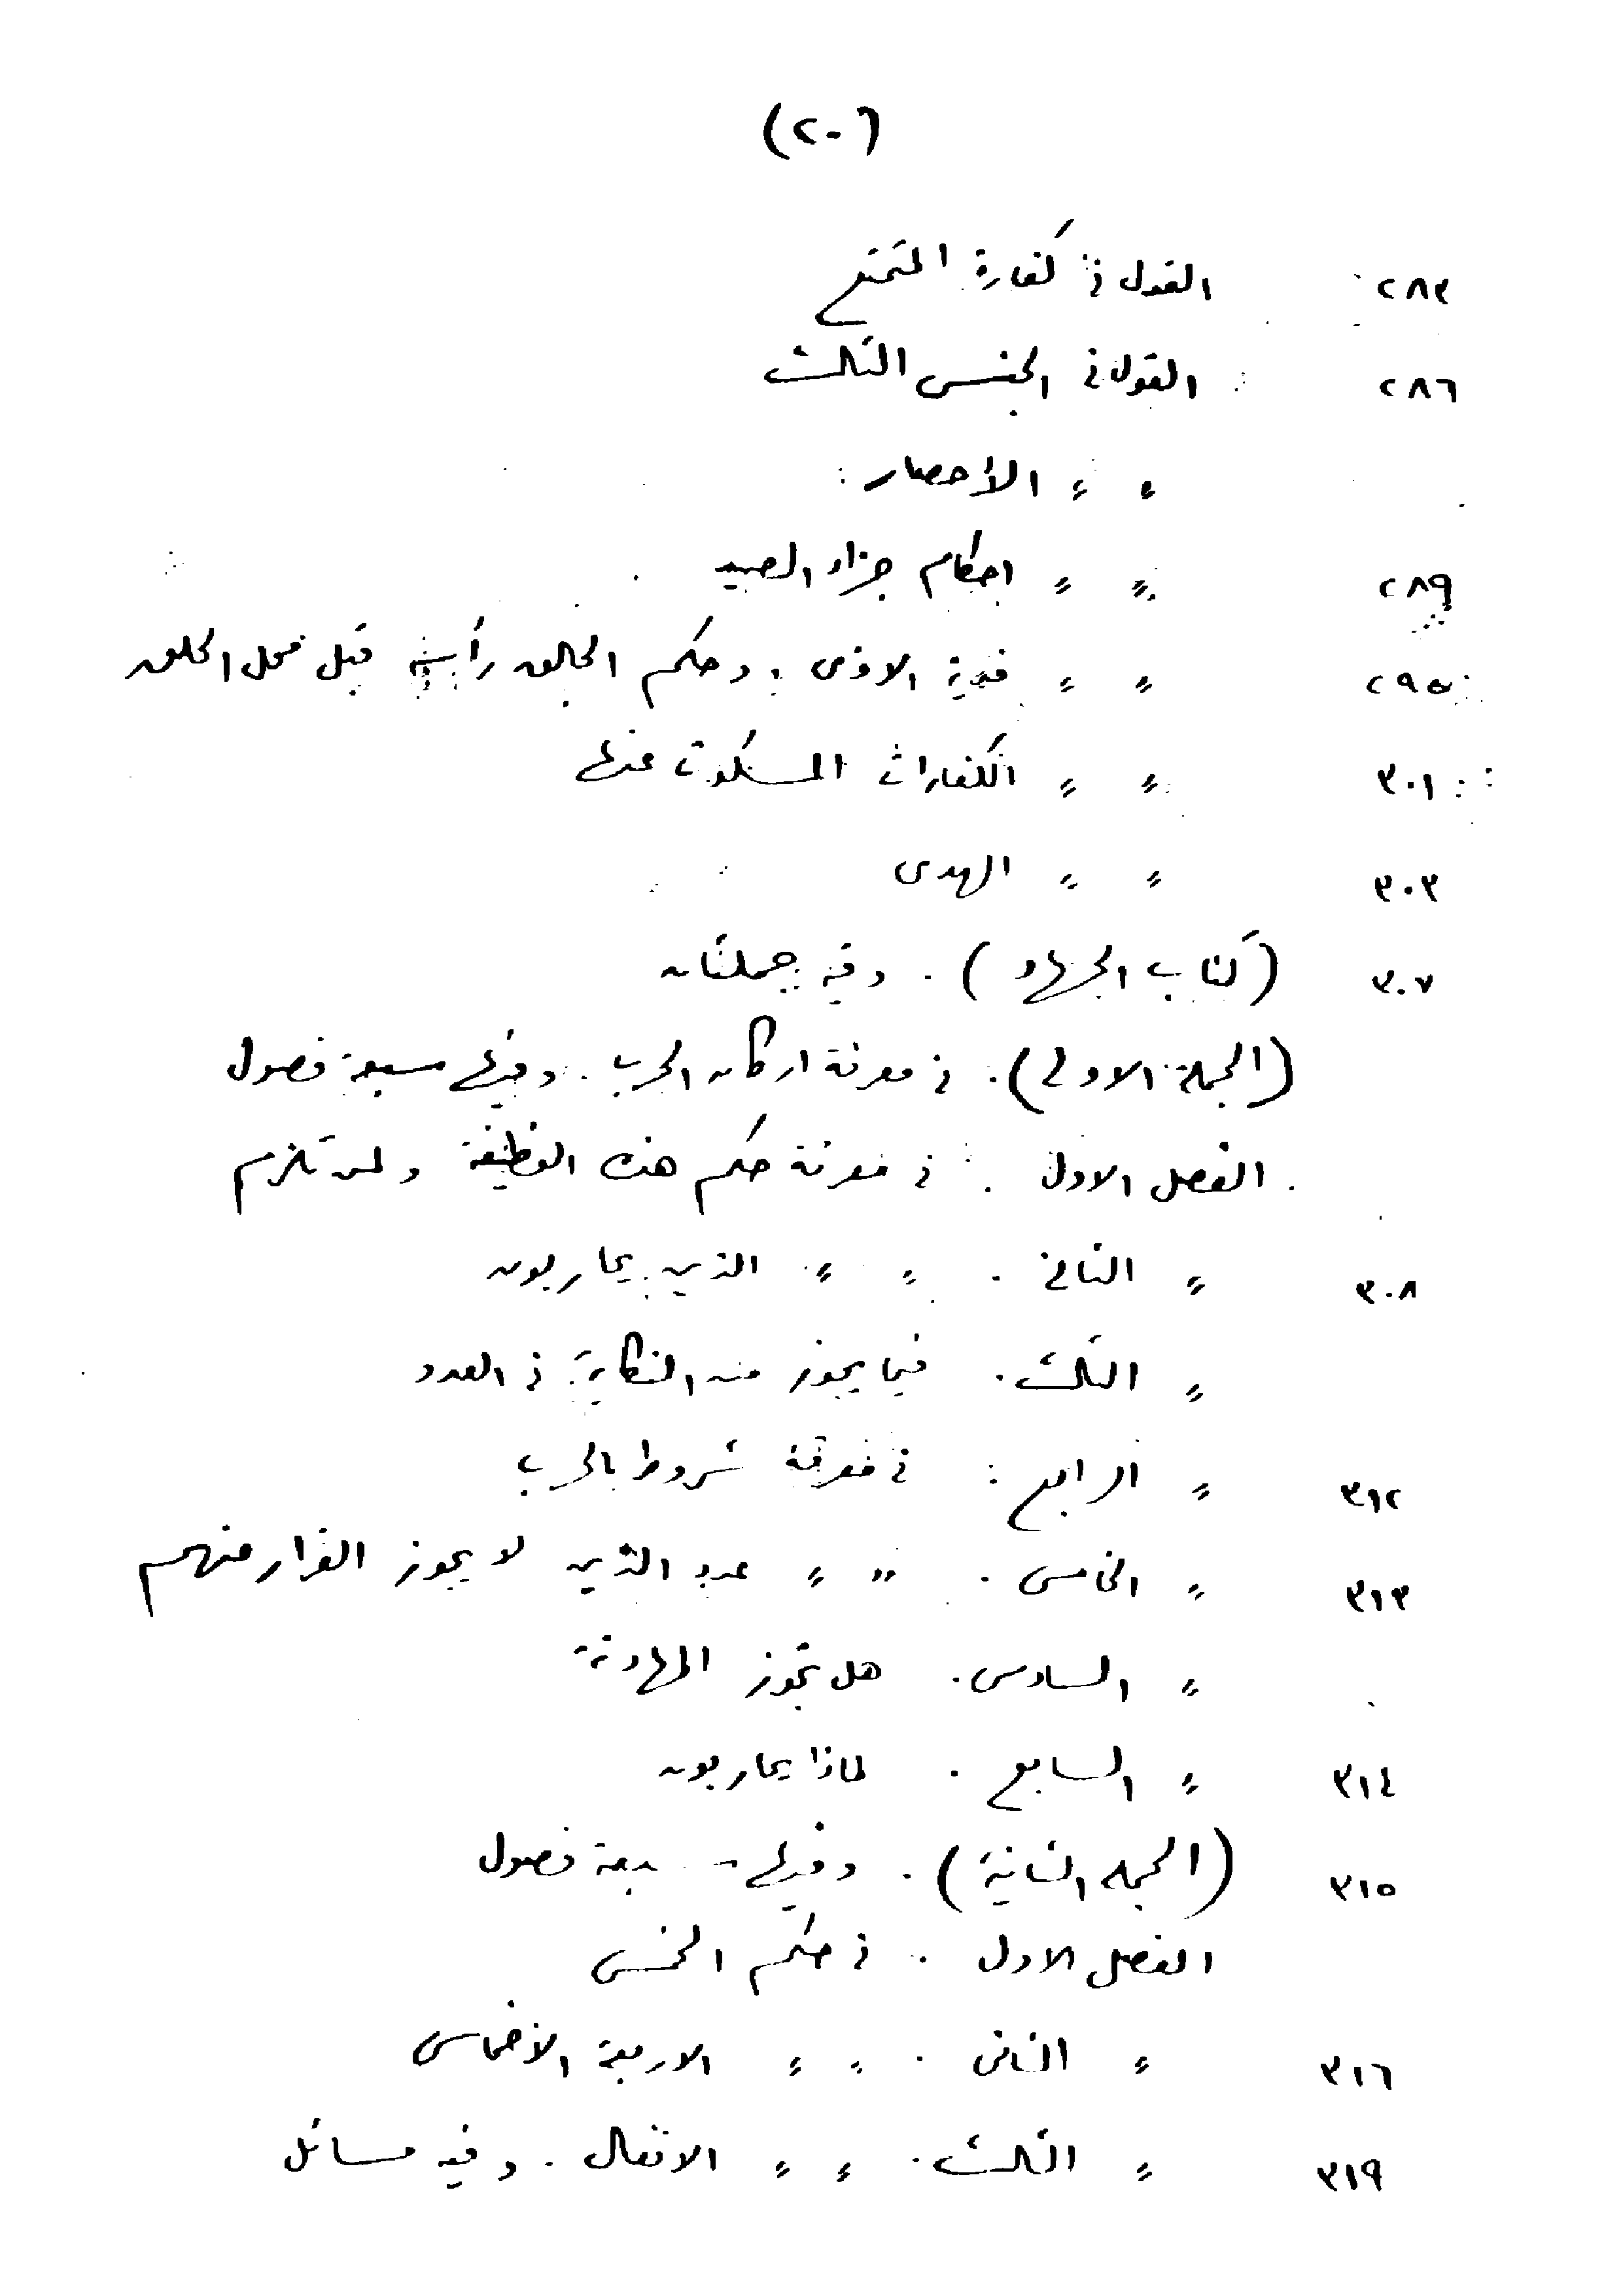 (٢٠٦)
٢٨٣ القول فى كفارة المتمتع
٢٨٦ القول فى الجنس الثالث
〃 〃 الأحصار :
٢٨٩ 〃 〃 احكام جزاء الصيد
٢٩٥ 〃 〃 فدية الاذى . وحكم الحالق رأسه قبل محل الحلق
٣٠١ 〃 〃 الكفارات المسكوت عنها
٣٠٣ 〃 〃 الهدى
٣٠٧ (كتاب الجهاد) . وفيه جملتان
(الجملة الاولى) . فى معرفة اركان الحرب . وفيها سبعة فصول
الفصل الاول . فى معرفة حكم هذه الوظيفة ولمن تلزم
٣٠٨ 〃 الثانى . 〃 〃 الذين يحاربون
〃 الثالث . فيما يجوز من النكاية فى العدو
٣١٢ 〃 الرابع : فى معرفة شروط الحرب
٣١٣ 〃 الخامس . 〃 〃 عدد الذين لا يجوز الفرار منهم
〃 السادس . هل تجوز المهادنة
٣١٤ 〃 السابع . لماذا يحاربون
٣١٥ (الجمله الثانية) . وفيها سبعة فصول
الفصل الاول . فى حكم الخمس
٣١٦ 〃 الثانى . 〃 〃 الاربعة الأخماس
٣١٩ 〃 الثالث . 〃 〃 الانفال . وفيه مسائل